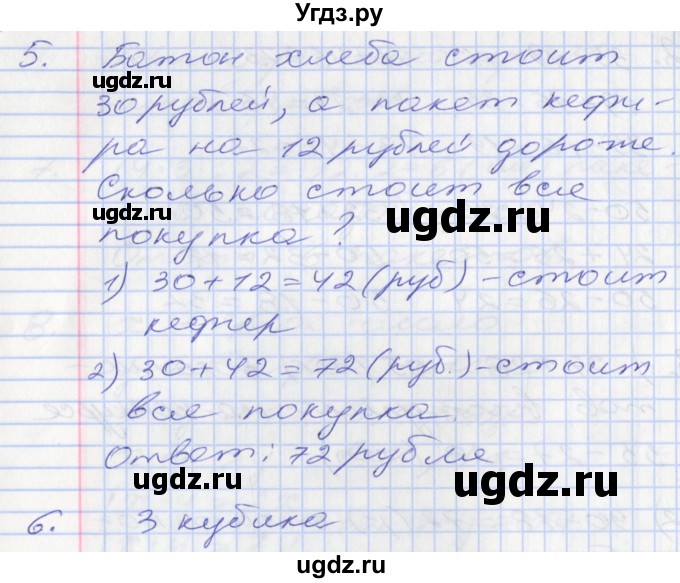 Угдз.ру
5. Батон хлеба стоит
ugdz.ru
30 рублей, а пакет кефи-
ра на 12 рублей дороже.
ugdz.ru
Сколько стоит вся
ugdz.ru
покупка?
ugdz.ru
1) 30+12=42(руб) - стоит
кефиер
ugdz.ru
2) 30+42=72(руб.) - стоит
ugdz.ru
вся покупка.
ugdz.ru
Ответ: 72 рубля
ugdz.ru
ugdz.ru
6. 3 кубика
ugdz.ru